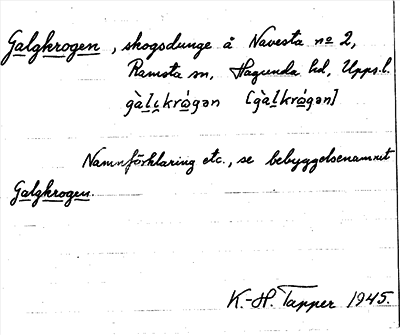 Galgkrogen, skogsdunge å Navesta nº 2,
Ramsta sn, Hagunda hd, Upps. l.
gàlg̣krǻgən [gàlkrǻgən]
Namnförklaring etc., se bebyggelsenamnet
Galgkrogen.
K.-H. Tapper 1945.